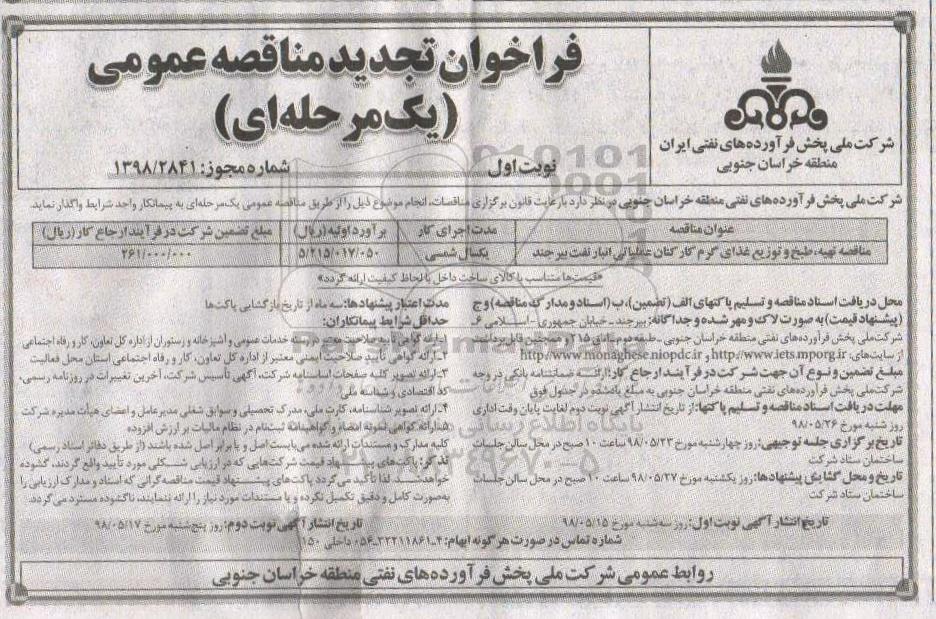 فراخوان تجدید مناقصه عمومی
(یک مرحله‌ای)
نوبت اول
شماره مجوز: ۱۳۹۸/۲۸۴۱
شرکت ملی پخش فرآورده‌های نفتی ایران
منطقه خراسان جنوبی
شرکت ملی پخش فرآورده‌های نفتی منطقه خراسان جنوبی در نظر دارد با رعایت قانون برگزاری مناقصات، انجام موضوع ذیل را از طریق مناقصه عمومی یک‌مرحله‌ای به پیمانکار واجد شرایط واگذار نماید.
عنوان مناقصه	مدت اجرای کار	برآورد اولیه (ریال)	مبلغ تضمین شرکت در فرآیند ارجاع کار (ریال)
مناقصه تهیه، طبخ و توزیع غذای گرم کارکنان عملیاتی انبار نفت بیرجند	یکسال شمسی	۵/۲۱۵/۰۱۷/۰۵۰	۲۶۱/۰۰۰/۰۰۰
«قیمت‌ها متناسب با کالای ساخت داخل با لحاظ کیفیت ارائه گردد»
محل دریافت اسناد مناقصه و تسلیم پاکتهای الف (تضمین)، ب (اسناد و مدارک مناقصه) و ج
(پیشنهاد قیمت) به صورت لاک و مهر شده و جداگانه: بیرجند ـ خیابان جمهوری اسلامی ۶ـ
شرکت ملی پخش فرآورده‌های نفتی منطقه خراسان جنوبی ـ طبقه دوم ـ اتاق ۲۱۵ و همچنین قابل برداشت
از سایت‌های: http://www.iets.mporg.ir و http://www.monaghese.niopdc.ir
مبلغ تضمین و نوع آن جهت شرکت در فرآیند ارجاع کار: ارائه ضمانتنامه بانکی در وجه
شرکت ملی پخش فرآورده‌های نفتی منطقه خراسان جنوبی به مبلغ یادشده در جدول فوق
مهلت دریافت اسناد مناقصه و تسلیم پاکتها: از تاریخ انتشار آگهی نوبت دوم لغایت پایان وقت اداری
روز شنبه مورخ ۹۸/۰۵/۲۶
تاریخ برگزاری جلسه توجیهی: روز چهارشنبه مورخ ۹۸/۰۵/۲۳ ساعت ۱۰ صبح در محل سالن جلسات
ساختمان ستاد شرکت
تاریخ و محل گشایش پیشنهادها: روز یکشنبه مورخ ۹۸/۰۵/۲۷ ساعت ۱۰ صبح در محل سالن جلسات
ساختمان ستاد شرکت
مدت اعتبار پیشنهادها: سه ماه از تاریخ بازگشایی پاکت‌ها
حداقل شرایط پیمانکاران:
۱ـ ارائه گواهی تأیید صلاحیت معتبر در رسته خدمات عمومی و آشپزخانه و رستوران از اداره کل تعاون، کار و رفاه اجتماعی
۲ـ ارائه گواهی تأیید صلاحیت ایمنی معتبر از اداره کل تعاون، کار و رفاه اجتماعی استان محل فعالیت
۳ـ ارائه تصویر کلیه صفحات اساسنامه شرکت، آگهی تأسیس شرکت، آخرین تغییرات در روزنامه رسمی،
کد اقتصادی و شناسه ملی
۴ـ ارائه تصویر شناسنامه، کارت ملی، مدرک تحصیلی و سوابق شغلی مدیرعامل و اعضای هیأت مدیره شرکت
۵ـ ارائه گواهی نمونه امضاء و گواهینامه ثبت‌نام در نظام مالیات بر ارزش افزوده
کلیه مدارک و مستندات ارائه شده می‌بایست اصل و یا برابر اصل شده باشند (از طریق دفاتر اسناد رسمی)
تذکر: پاکت‌های پیشنهاد قیمت شرکت‌هایی که در ارزیابی شکلی مورد تأیید واقع گردند، گشوده
خواهد شد. لذا تأکید می‌گردد پاکت‌های پیشنهاد قیمت مناقصه‌گرانی که اسناد و مدارک ارزیابی را
به‌صورت کامل و دقیق تکمیل نکرده و یا مستندات مورد نیاز را ارائه ننمایند، ناگشوده مسترد می‌گردد.
تاریخ انتشار آگهی نوبت اول: روز سه‌شنبه مورخ ۹۸/۰۵/۱۵
تاریخ انتشار آگهی نوبت دوم: روز پنج‌شنبه مورخ ۹۸/۰۵/۱۷
شماره تماس در صورت هر گونه ابهام: ۴ـ۳۲۲۱۱۸۶۱ـ۰۵۶ داخلی ۱۵۰
روابط عمومی شرکت ملی پخش فرآورده‌های نفتی منطقه خراسان جنوبی